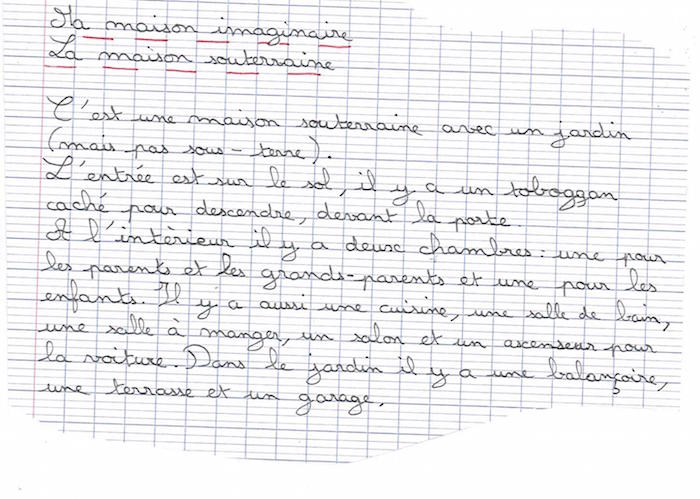 Ma maison imaginaire
La maison souterraine
C'est une maison souterraine avec un jardin
(mais pas sous-terre).
L'entrée est sur le sol, il y a un toboggan
caché pour descendre, devant la porte.
A l'intèrieur il y a deux chambres : une pour
les parents et les grands-parents et une pour les
enfants. Il y a aussi une cuisine, une salle de bain,
une salle à manger, un salon et un ascenseur pour
la voiture. Dans le jardin il y a une balançoire,
une terrasse et un garage.